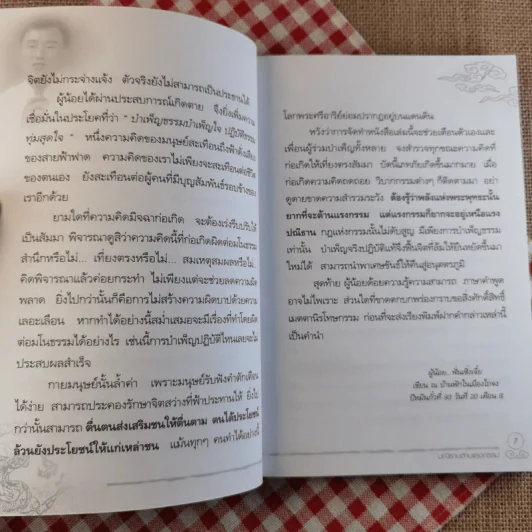 จิตยังไม่กระจ่างแจ้ง ตัวจริงยังไม่สามารถเป็นประธานได้
ผู้น้อยได้ผ่านประสบการณ์เกิดตาย จึงยิ่งเพิ่มความ
เชื่อมั่นในประโยคที่ว่า "บำเพ็ญธรรมบำเพ็ญใจ ปฏิบัติธรรม
ทุ่มสุดใจ" หนึ่งความคิดของมนุษย์สะเทือนถึงฟ้าดังเสียง
ของสายฟ้าฟาด ความคิดของเราไม่เพียงจะสะเทือนต่อชีวิต
ของตนเอง ยังสะเทือนต่อผู้คนที่มีบุญสัมพันธ์รอบข้างของ
เราอีกด้วย
ยามใดที่ความคิดมิจฉาก่อเกิด จะต้องเร่งรีบปรับให้
เป็นสัมมา พิจารณาดูสิว่าความคิดนี้ที่ก่อเกิดผิดต่อมโนธรรม
สำนึกหรือไม่... เที่ยงตรงหรือไม่... สมเหตุสมผลหรือไม่...
คิดพิจารณาแล้วค่อยกระทำ ไม่เพียงแต่จะช่วยลดความผิด
พลาด ยิ่งไปกว่านั้นก็คือการไม่สร้างความผิดบาปด้วยความ
เลอะเลือน หากทำได้อย่างนี้สม่ำเสมอจะมีเรื่องที่ทำโดยผิด
ต่อมโนธรรมได้อย่างไร เช่นนี้การบำเพ็ญปฏิบัติไหนเลยจะไม่
ประสบผลสำเร็จ
กายมนุษย์นั้นล้ำค่า เพราะมนุษย์รับฟังคำตักเตือน
ได้ง่าย สามารถประคองรักษาจิตสว่างที่ฟ้าประทานให้ ยิ่งไป
กว่านั้นสามารถ ตื่นตนส่งเสริมชนให้ตื่นตาม ตนได้ประโยชน์
ล้วนยังประโยชน์ให้แก่เหล่าชน แม้นทุกๆ คนทำได้อย่างนี้
โลกพระศรีอาริย์ย่อมปรากฏอยู่บนแดนดิน
หวังว่าการจัดทำหนังสือเล่มนี้จะช่วยเตือนตัวเองและ
เพื่อนผู้ร่วมบำเพ็ญทั้งหลาย จงสำรวจทุกขณะความคิดที่
ก่อเกิดให้เที่ยงตรงสัมมา บัดนี้เภทภัยเกิดขึ้นมากมาย เมื่อ
ก่อเกิดความคิดถดถอย วิบากกรรมต่างๆ ก็ติดตามมา อย่า
ดูดายขาดความสำรวมระวัง ต้องรู้ว่าพลังแห่งพระพุทธะนั้น
ยากที่จะต้านแรงกรรม แต่แรงกรรมก็ยากจะอยู่เหนือแรง
ปณิธาน กฎแห่งกรรมนั้นไม่ดับสูญ มีเพียงการบำเพ็ญธรรม
เท่านั้น บำเพ็ญจริงปฏิบัติแท้จึงฟื้นจิตที่ล้มให้ยืนหยัดขึ้นมา
ใหม่ได้ สามารถนำพาเศษขันธ์ให้คืนสู่อนุตตรภูมิ
สุดท้าย ผู้น้อยด้อยความรู้ความสามารถ ภาษาคำพูด
อาจไม่ไพเราะ ส่วนใดที่ขาดตกบกพร่องกราบขอสิ่งศักดิ์สิทธิ์
เมตตานิรโทษกรรม ก่อนที่จะส่งเรียงพิมพ์ฝากคำกล่าวเหล่านี้
เป็นคำนำ
ผู้น้อย..
เขียน ณ บ้านพักในเมืองไถจง
7